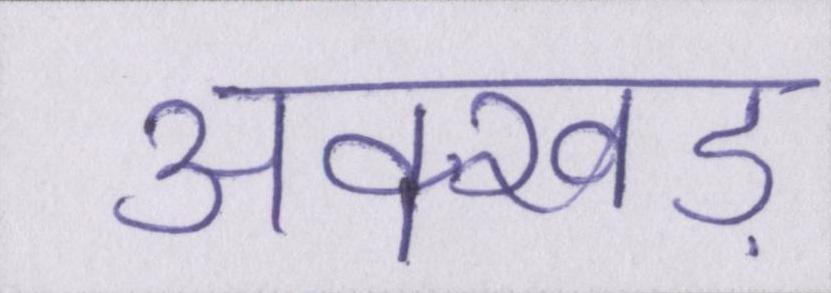 अक्खड़